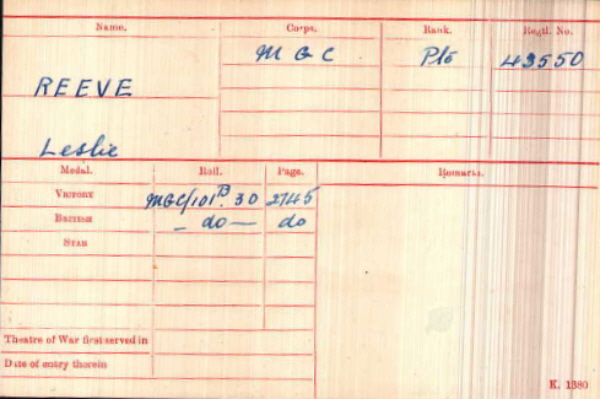 Name. Corps. Rank. Regtl. No.
M G C Pte 43550
REEVE
Leslie
Medal. Roll. Page. Remarks.
Victory MGC/101B. 30 2745
British - do - do
Star
Theatre of War first served in
Date of entry therein
K. 1380